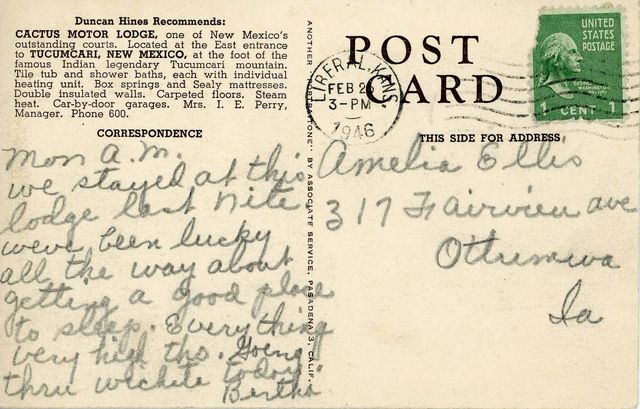 Duncan Hines Recommends:
CACTUS MOTOR LODGE, one of New Mexico's
outstanding courts. Located at the East entrance
to TUCUMCARI, NEW MEXICO, at the foot of the
famous Indian legendary Tucumcari mountain.
Tile tub and shower baths, each with individual
heating unit. Box springs and Sealy mattresses.
Double insulated walls. Carpeted floors. Steam
heat. Car-by-door garages. Mrs. I. E. Perry,
Manager. Phone 600.
CORRESPONDENCE
Mon A.M.
we stayed at this
lodge last nite.
weve been lucky
all the way about
getting a good place
to sleep. Everything
very high tho. Going
thru wichita today.
Bertha
BY ASSOCIATED SERVICE, PASADENA 3, CALIF.
POST
CARD
LIBERAL, KANS.
FEB 2
3-PM
1946
UNITED
STATES
POSTAGE
GEORGE WASHINGTON
1 CENT 1
THIS SIDE FOR ADDRESS
Amelia Ellis
317 Fairview ave
Ottumwa
Ia